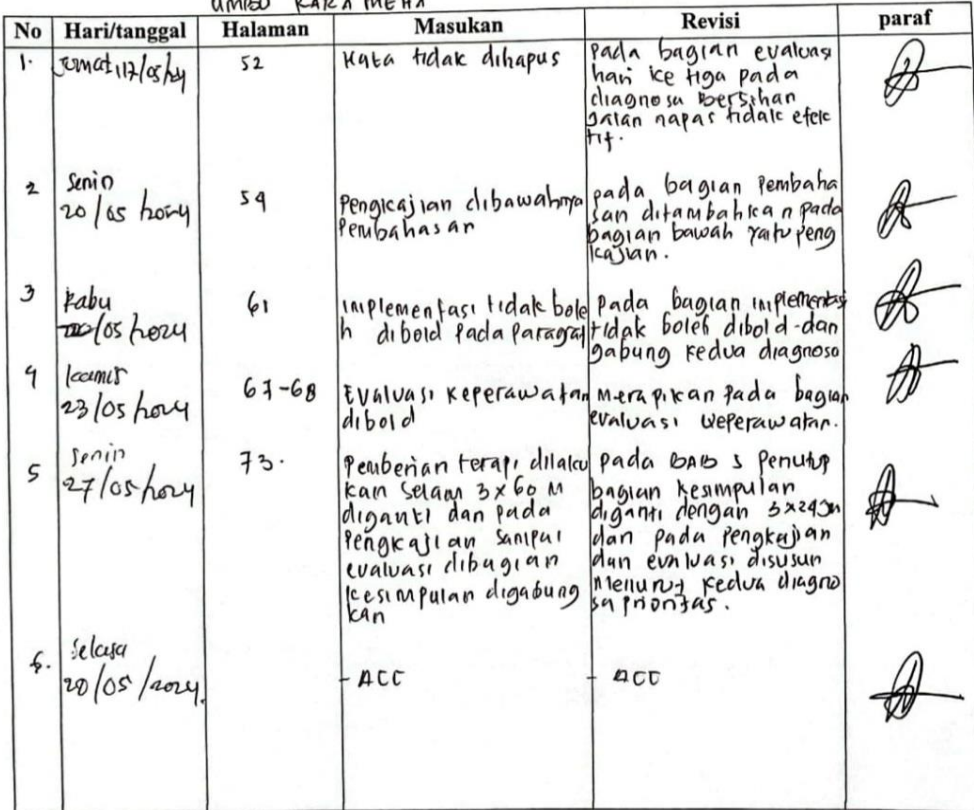 UMBU KARA MEHA
No Hari/tanggal Halaman Masukan Revisi paraf
1. Jumat, 17/05/24 52 Kata tidak dihapus pada bagian evaluasi
hari ke tiga pada
diagnosa Bersihan
jalan napas tidak efek
tif.
2 Senin
20/05/2024 54 Pengkajian dibawahnya
Pembahasan pada bagian Pembaha
san ditambahkan pada
bagian bawah yaitu peng
kajian.
3 Rabu
/05/2024 61 implementasi tidak bole
h dibold pada paragraf pada bagian implementasi
tidak boleh dibold dan
gabung kedua diagnosa
4 kamis
23/05/2024 67-68 Evaluasi keperawatan
dibold Merapikan pada bagian
evaluasi keperawatan.
5 Senin
27/05/2024 73. Pemberian terapi dilaku
kan Selam 3x60 M
diganti dan pada
Pengkajian sampai
evaluasi dibagian
kesimpulan digabung
kan pada BAB 5 Penutup
bagian kesimpulan
diganti dengan 3x24
dan pada pengkajian
dan evaluasi disusun
menurut kedua diagno
sa prioritas.
6. Selasa
28/05/2024. - ACC - ACC